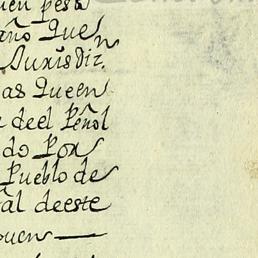 uen pesa
año que
Jurisdizⁿ
as Queen
deel Peñol
do Por
Pueblo de
al deeste
ouen —